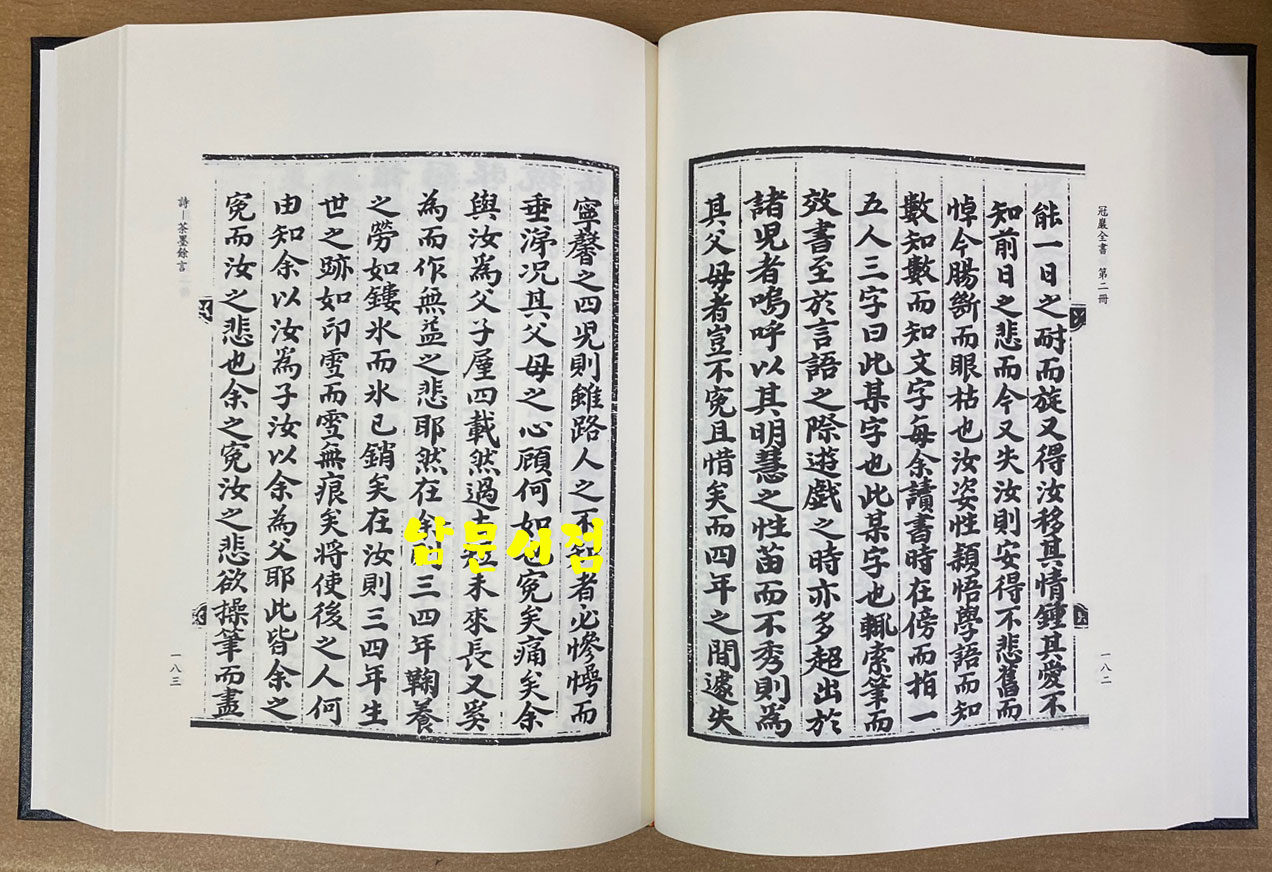 冠巖全書 第二冊
能一日之耐而旋又得汝移其情鍾其愛不
知前日之悲而今又失汝則安得不悲舊而
悼今腸斷而眼枯也汝姿性穎悟學語而知
數知數而知文字每余讀書時在傍而指一
五人三字曰此某字也此某字也輒索筆而
效書至於言語之際遊戱之時亦多超出於
諸児者嗚呼以其明慧之性苗而不秀則為
其父母者豈不寃且惜矣而四年之間遽失
一八二
寧馨之四児則雖路人之不者必慘愕而
垂涕况其父母之心顧何如也寃矣痛矣余
與汝爲父子厪四載然過去未來長又奚
為而作無益之悲耶然在余則三四年鞠養
之勞如鏤氷而氷已銷矣在汝則三四年生
世之跡如印雪而雪無痕矣將使後之人何
由知余以汝爲子汝以余為父耶此皆余之
寃而汝之悲也余之寃汝之悲欲操筆而盡
詩—茶墨餘言
一八三
남문서점